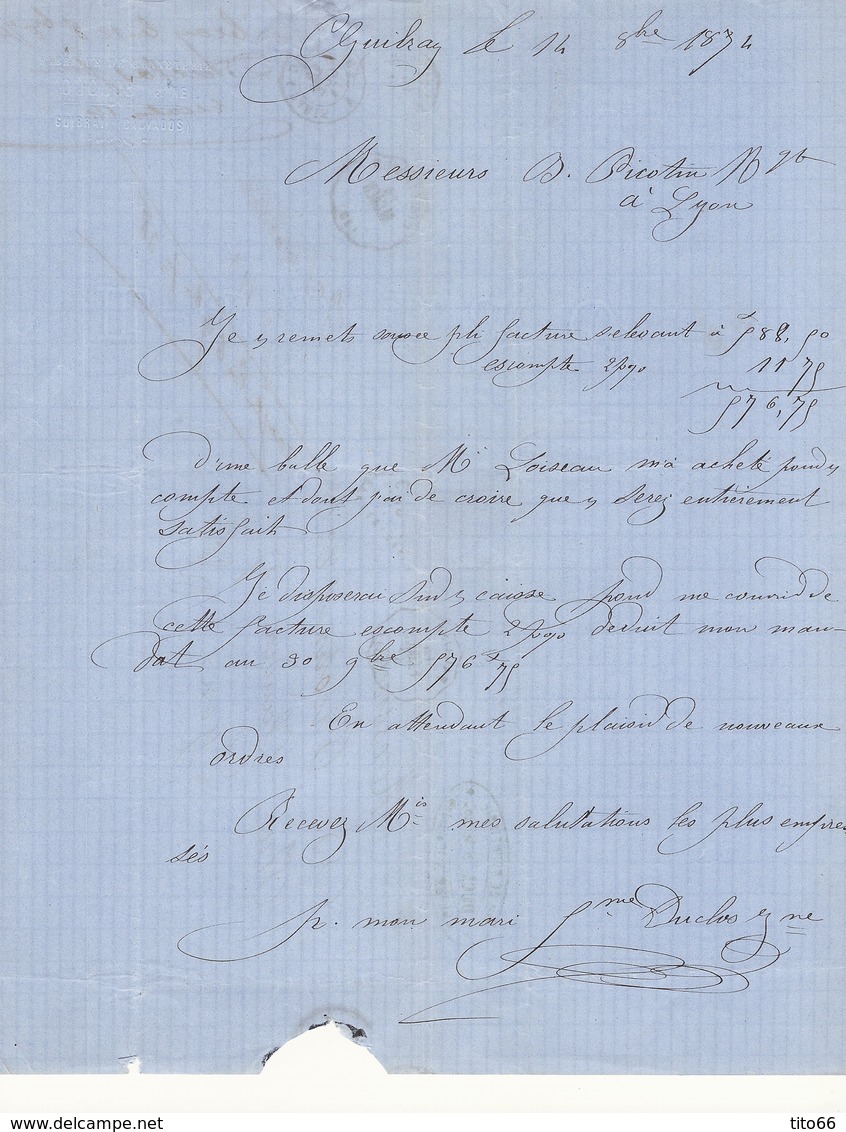 Guibray le 14 8bre 1874
Messieurs B. Picotin Ngt
à Lyon
Je v remets sous ce pli facture s'elevant à 588,50
escompte 2p% 11 75
576,75
d'une balle que Mr Loiseau m'a acheté pour v
compte et dont j'ai de croire que v serez entièrement
satisfait
Je disposerai sur v caisse pour me couvrir de
cette facture escompte 2p% deduit mon man-
dat au 30 9bre 576f75
En attendant le plaisir de nouveaux
ordres
Recevez Mrs mes salutations les plus empres
sés
pr. mon mari fme Duclos jne
tito66